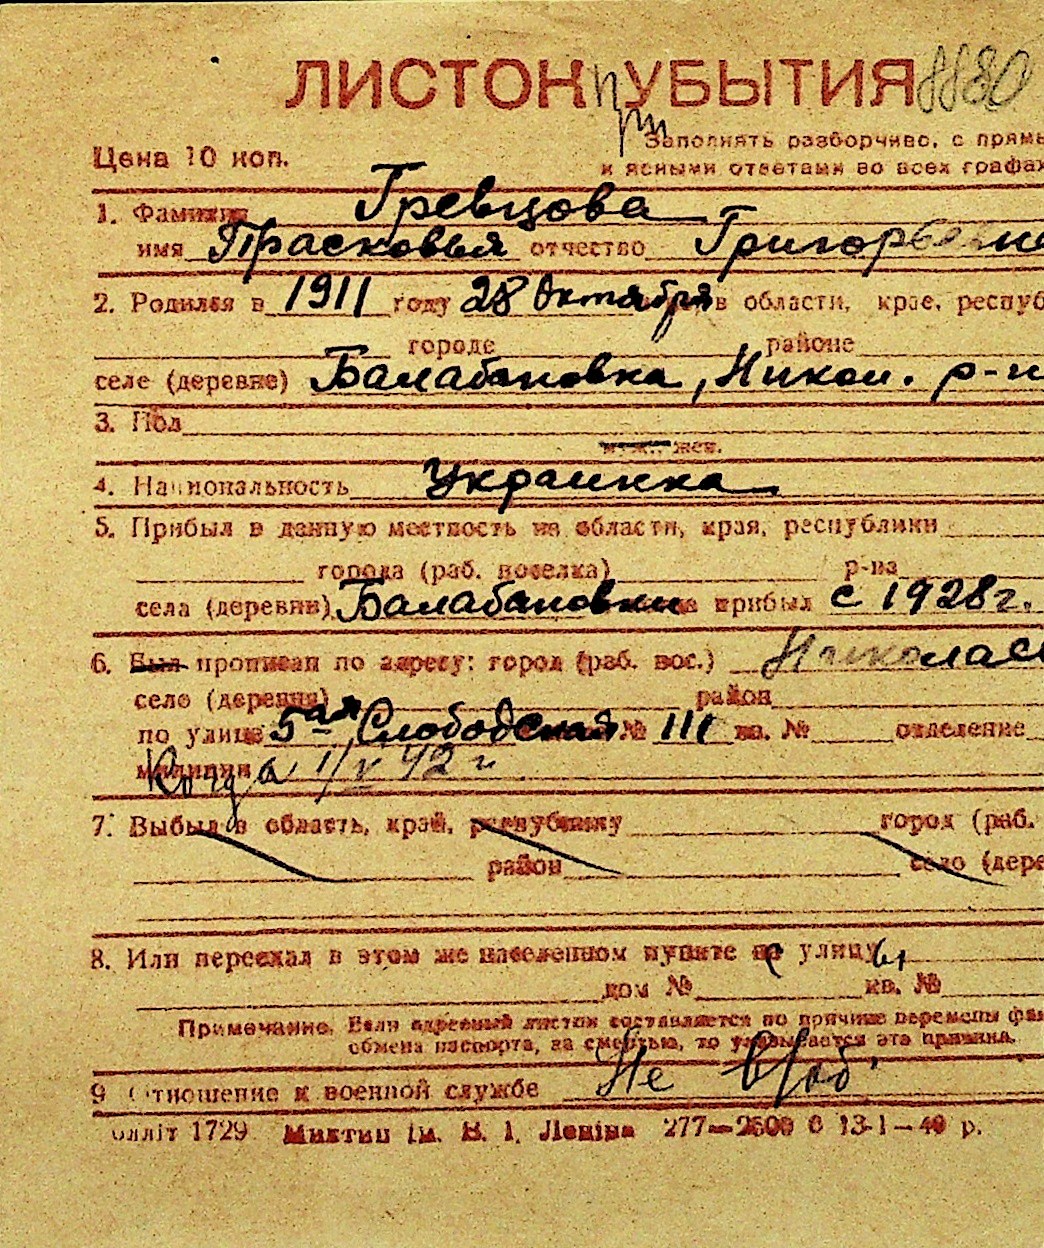 ЛИСТОК при УБЫТИЯ 8880
Цена 10 коп.
Заполнять разборчиво, с прямы
и ясными ответами во всех графах
1. Фамилия Гревцова
имя Прасковья отчество Григорьевна
2. Родился в 1911 году 28 октября в области, крае, респуб
городе районе
селе (деревне) Балабановка, Никол. р-н
3. Пол
муж. жен.
4. Национальность Украинка
5. Прибыл в данную местность из области, края, республики
города (раб. поселка) р-на
села (деревни) Балабановки прибыл с 1928 г.
6. Был прописан по адресу: город (раб. пос.) Николаев
село (деревня) район
по улице 5-ая Слободская № 111 кв. № отделение
милиции Когда 1/V 42 г
7. Выбыл в область, край, республику город (раб.
район село (дере
8. Или переехал в этом же населенном пункте с улицы
дом № кв. №
Примечание. Если адресный листок составляется по причине перемены фам
обмена паспорта, за смертью, то указывается эта причина.
9 Отношение к военной службе Не в/об
олліт 1729 Миктип ім. В. І. Леніна 277—2600 0 13-1—40 р.